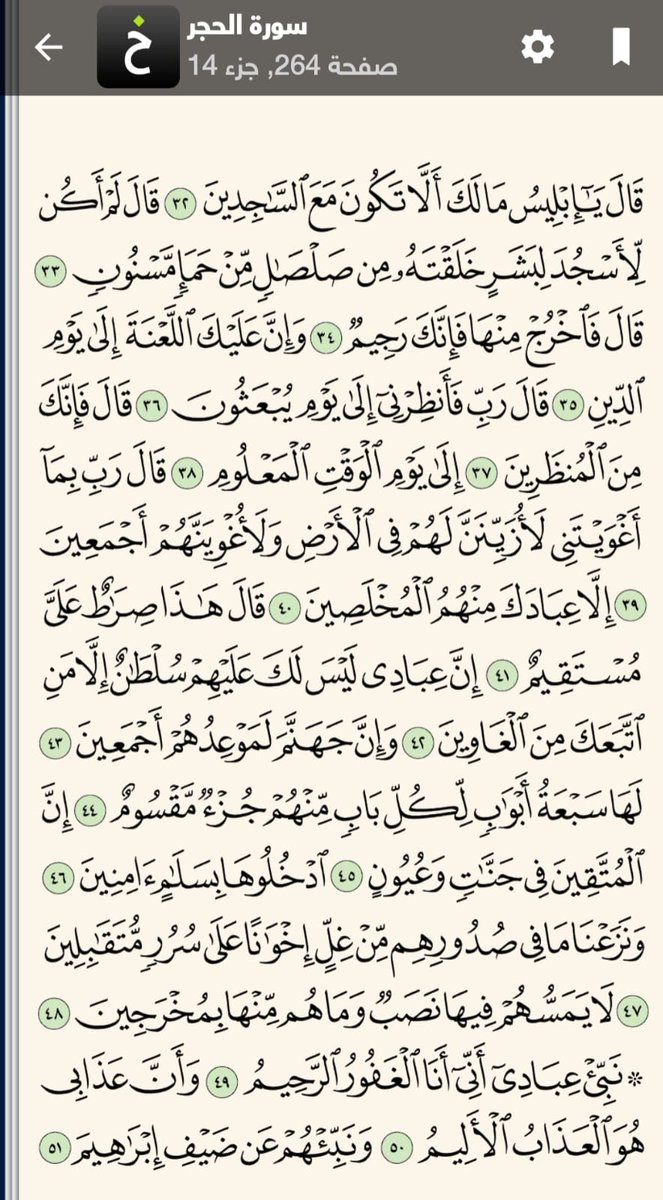 سورة الحجر
صفحة 264, جزء 14
خ
قَالَ يَـٰٓإِبْلِيسُ مَا لَكَ أَلَّا تَكُونَ مَعَ ٱلسَّـٰجِدِينَ ٣٢ قَالَ لَمْ أَكُن
لِّأَسْجُدَ لِبَشَرٍ خَلَقْتَهُۥ مِن صَلْصَـٰلٍ مِّنْ حَمَإٍ مَّسْنُونٍ ٣٣
قَالَ فَٱخْرُجْ مِنْهَا فَإِنَّكَ رَجِيمٌ ٣٤ وَإِنَّ عَلَيْكَ ٱللَّعْنَةَ إِلَىٰ يَوْمِ
ٱلدِّينِ ٣٥ قَالَ رَبِّ فَأَنظِرْنِىٓ إِلَىٰ يَوْمِ يُبْعَثُونَ ٣٦ قَالَ فَإِنَّكَ
مِنَ ٱلْمُنظَرِينَ ٣٧ إِلَىٰ يَوْمِ ٱلْوَقْتِ ٱلْمَعْلُومِ ٣٨ قَالَ رَبِّ بِمَآ
أَغْوَيْتَنِى لَأُزَيِّنَنَّ لَهُمْ فِى ٱلْأَرْضِ وَلَأُغْوِيَنَّهُمْ أَجْمَعِينَ
٣٩ إِلَّا عِبَادَكَ مِنْهُمُ ٱلْمُخْلَصِينَ ٤٠ قَالَ هَـٰذَا صِرَٰطٌ عَلَىَّ
مُسْتَقِيمٌ ٤١ إِنَّ عِبَادِى لَيْسَ لَكَ عَلَيْهِمْ سُلْطَـٰنٌ إِلَّا مَنِ
ٱتَّبَعَكَ مِنَ ٱلْغَاوِينَ ٤٢ وَإِنَّ جَهَنَّمَ لَمَوْعِدُهُمْ أَجْمَعِينَ ٤٣
لَهَا سَبْعَةُ أَبْوَٰبٍ لِّكُلِّ بَابٍ مِّنْهُمْ جُزْءٌ مَّقْسُومٌ ٤٤ إِنَّ
ٱلْمُتَّقِينَ فِى جَنَّـٰتٍ وَعُيُونٍ ٤٥ ٱدْخُلُوهَا بِسَلَـٰمٍ ءَامِنِينَ ٤٦
وَنَزَعْنَا مَا فِى صُدُورِهِم مِّنْ غِلٍّ إِخْوَٰنًا عَلَىٰ سُرُرٍ مُّتَقَـٰبِلِينَ
٤٧ لَا يَمَسُّهُمْ فِيهَا نَصَبٌ وَمَا هُم مِّنْهَا بِمُخْرَجِينَ ٤٨
* نَبِّئْ عِبَادِىٓ أَنِّىٓ أَنَا ٱلْغَفُورُ ٱلرَّحِيمُ ٤٩ وَأَنَّ عَذَابِى
هُوَ ٱلْعَذَابُ ٱلْأَلِيمُ ٥٠ وَنَبِّئْهُمْ عَن ضَيْفِ إِبْرَٰهِيمَ ٥١